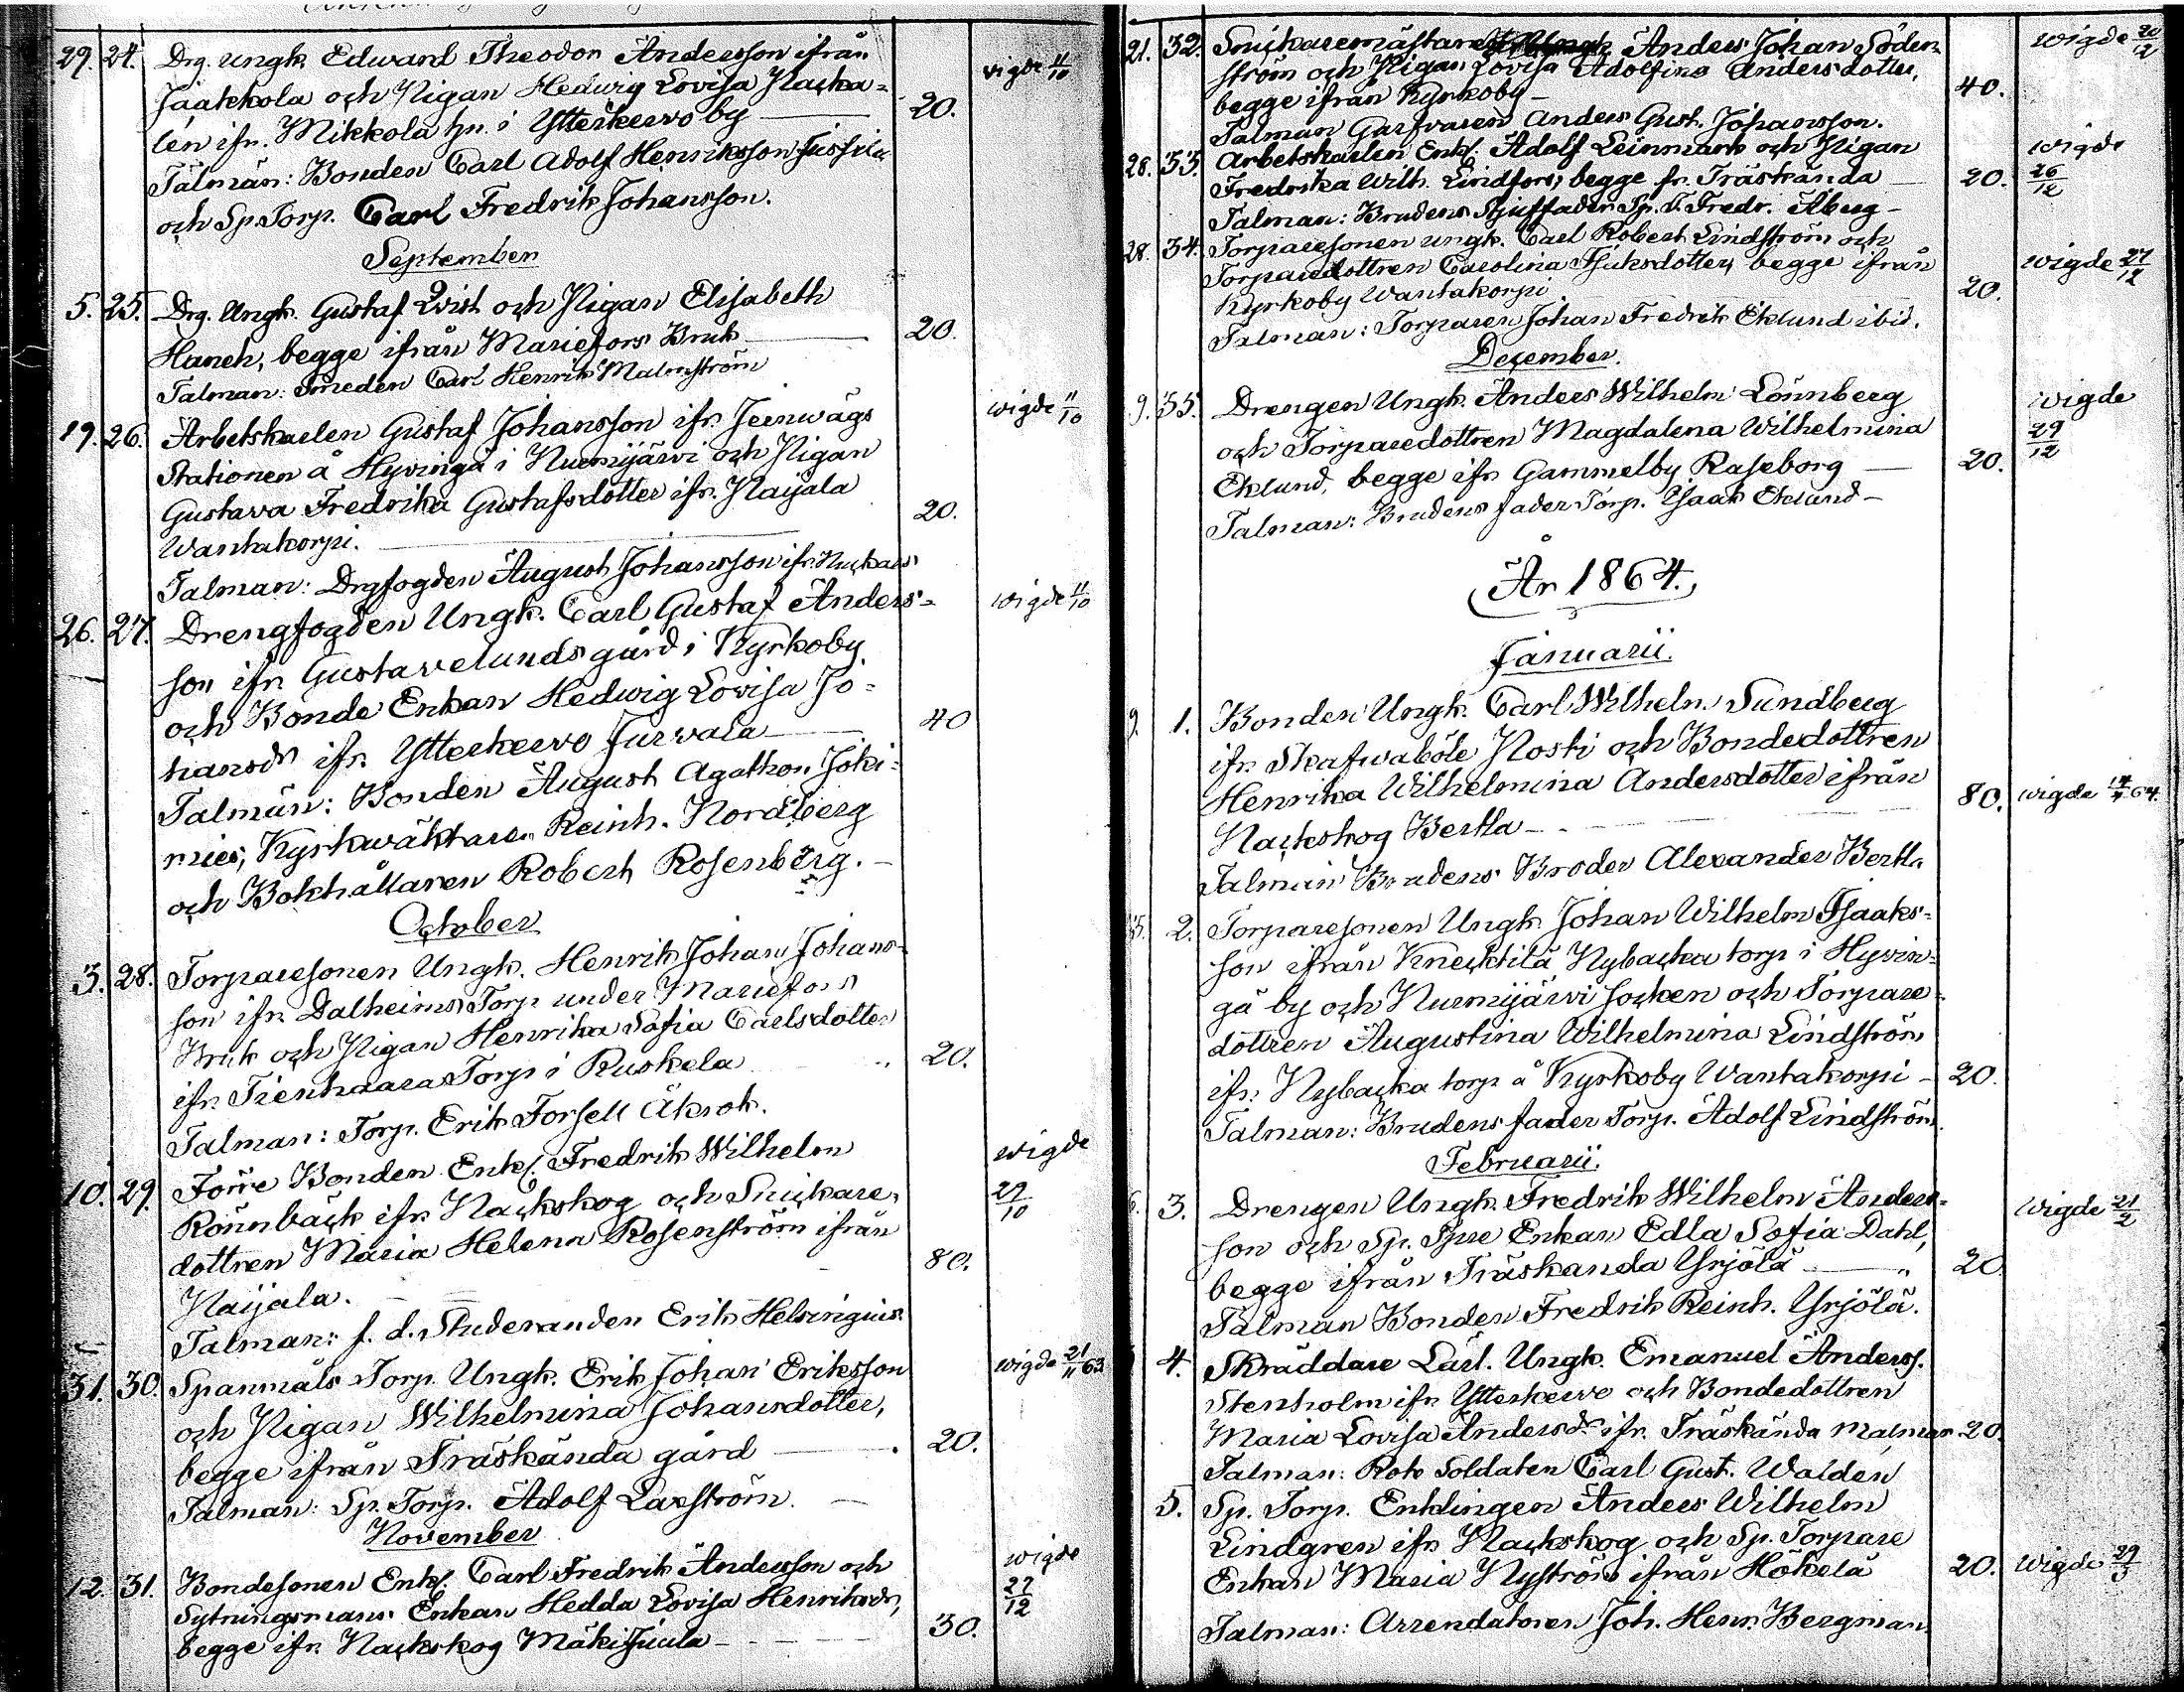 29. 24. Drg. Ungk. Edward Theodor Andersson ifrån wigde 11/10
Jaakkola och Pigan Hedwig Lovisa Backa=
len ifr. Mikkola hn. i Ytterkervo by 20.
Talmän: Bonden Carl Adolf Henriksson Jussila
och Sp. Torp. Carl Fredrik Johansson.
September
5. 25. Drg. Ungk. Gustaf Qvist och Pigan Elisabeth
Haneh, begge ifrån Mariefors Bruk 20.
Talman: Smeden Carl Henrik Malmström
19. 26. Arbetskarlen Gustaf Johansson ifr. Jernwägs wigde 11/10
Stationen å Hyvingä i Nurmijärvi och Pigan
Gustava Fredrika Gustafsdotter ifr. Paijala
Wantakorpi. 20.
Talman: Drgfogden August Johansson ifr. Nuckars
26. 27. Drengfogden Ungk. Carl Gustaf Anders= wigde 11/10
son ifr. Gustavelunds gård i Kyrkoby
och Bonde Enkan Hedwig Lovisa Jo=
hansdr ifr. Ytterkervo Jurvala 40
Talmän: Bonden August Agathon Joki=
mies, Kyrkwäktaren Reinh. Nordberg
och Bokhållaren Robert Rosenberg.
October
3. 28. Torparesonen Ungk. Henrik Johan Johans=
son ifr. Dalheims Torp under Mariefors
Bruk och Pigan Henrika Sofia Carlsdotter
ifr. Tienhaara Torp i Ruskela 20.
Talman: Torp. Erik Forsell Åkrok.
10. 29. Förre Bonden Enkl. Fredrik Wilhelm wigde 29/10
Rönnbäck ifr. Nackskog och Snickare=
dottren Maria Helena Rosenström ifrån
Paijala. 80.
Talman: f. d. Studeranden Erik Helsingius.
31. 30. Spanmåls Torp. Ungk. Erik Johan Eriksson wigde 21/11 63
och Pigan Wilhelmina Johansdotter,
begge ifrån Träskända gård 20.
Talman: Sp. Torp. Adolf Laxström.
November
12. 31. Bondesonen Enkl. Carl Fredrik Andersson och wigde 27/12
Sytningsmans Enkan Hedda Lovisa Henriksdr,
begge ifr. Nackskog Mäki Juula 30.
21. 32. Snickaremästaren Anders Johan Söder= wigde 20/12
ström och Pigan Lovisa Adolfina Andersdotter,
begge ifrån Kyrkoby 40.
Talman Garfvaren Anders Gust. Johansson.
28. 33. Arbetskarlen Enkl. Adolf Leinmark och Pigan wigde 26/12
Fredrika Wilh. Lindfors, begge fr. Träskända 20.
Talman: Brudens Stjuffader Sp. T. Fredr. Åberg
28. 34. Torparesonen ungk. Carl Robert Lindström och
Torparedottren Carolina Isaksdotter, begge ifrån wigde 27/12
Kyrkoby Wantakorpi 20.
Talman: Torparen Johan Fredrik Eklund ibid.
December.
9. 35. Drengen Ungk. Anders Wilhelm Lönnberg wigde 29/12
och Torparedottren Magdalena Wilhelmina
Eklund, begge ifr. Gammelby Raseborg 20.
Talman: Brudens fader Torp. Isaak Eklund
År 1864.
Januarii.
9. 1. Bonden Ungk. Carl Wilhelm Sundberg
ifr. Skafwaböle Nosti och Bondedottren
Henrika Wilhelmina Andersdotter ifrån
Nackskog Bertla 80. wigde 64.
Talman Brudens Broder Alexander Bertla
2. Torparesonen Ungk. Johan Wilhelm Isaaks=
son ifrån Knecktilä Nybacka torp i Hyvin=
gä by och Nurmijärvi socken och Torpare=
dottren Augustina Wilhelmina Lindström
ifr. Nybacka torp å Kyrkoby Wantakorpi 20.
Talman: Brudens fader Torp. Adolf Lindström.
Februarii.
6. 3. Drengen Ungk. Fredrik Wilhelm Anders= wigde 21/2
son och Sp. Tpre Enkan Edla Sofia Dahl,
begge ifrån Träskanda Yrjölä 20
Talman Bonden Fredrik Reinh. Yrjölä.
4. Skräddare Lärl. Ungk. Emanuel Anderss.
Stenholm ifr. Ytterkervo och Bondedottren
Maria Lovisa Andersdr ifr. Träskända Malmar 20
Talman: Rote Soldaten Carl Gust. Walden
5. Sp. Torp. Enklingen Anders Wilhelm
Lindgren ifr. Nackskog och Sp. Torpare
Enkan Maria Nyström ifrån Hökelä 20. wigde 29/3
Talman: Arrendatoren Joh. Henr. Bergman